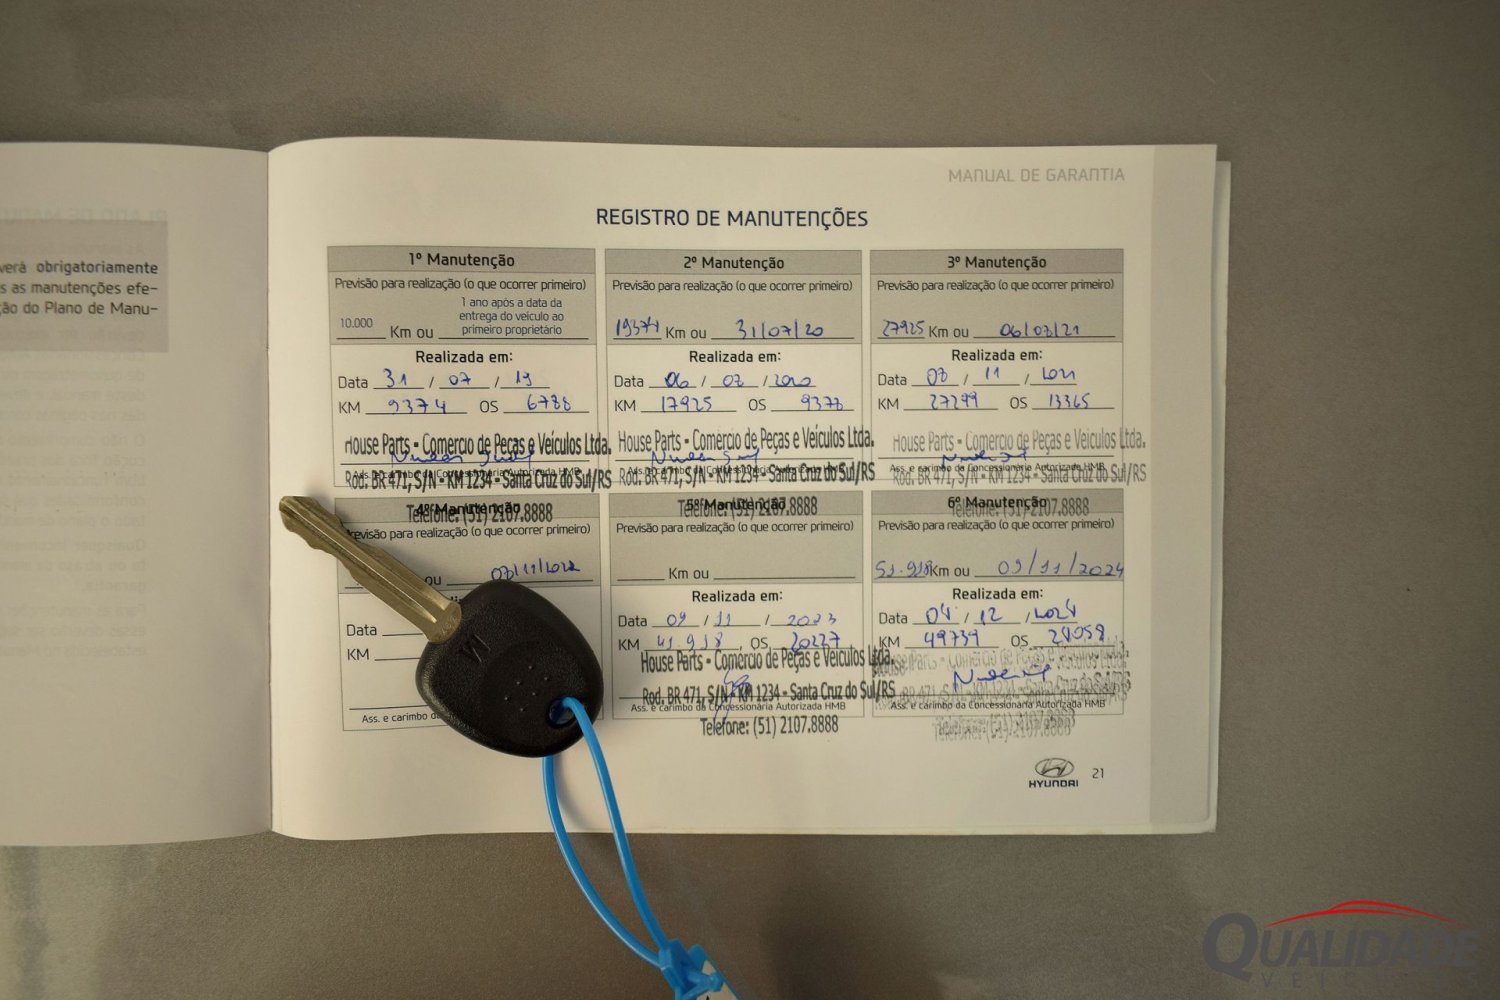 verá obrigatoriamente
s as manutenções efe-
ção do Plano de Manu-
MANUAL DE GARANTIA
REGISTRO DE MANUTENÇÕES
1º Manutenção
Previsão para realização (o que ocorrer primeiro)
10.000 Km ou 1 ano após a data da
entrega do veículo ao
primeiro proprietário
Realizada em:
Data 31 / 07 / 19
KM 9374 OS 6788
House Parts - Comércio de Peças e Veículos Ltda.
Ass. e carimbo da Concessionária Autorizada HMB
Rod. BR 471, S/N - KM 1234 - Santa Cruz do Sul/RS
Telefone: (51) 2107.8888
2º Manutenção
Previsão para realização (o que ocorrer primeiro)
19374 Km ou 31/07/20
Realizada em:
Data 06 / 03 / 2020
KM 17925 OS 9378
House Parts - Comércio de Peças e Veículos Ltda.
Ass. e carimbo da Concessionária Autorizada HMB
Rod. BR 471, S/N - KM 1234 - Santa Cruz do Sul/RS
Telefone: (51) 2107.8888
3º Manutenção
Previsão para realização (o que ocorrer primeiro)
27925 Km ou 06/03/21
Realizada em:
Data 03 / 11 / 2021
KM 27299 OS 13365
House Parts - Comércio de Peças e Veículos Ltda.
Ass. e carimbo da Concessionária Autorizada HMB
Rod. BR 471, S/N - KM 1234 - Santa Cruz do Sul/RS
Telefone: (51) 2107.8888
4º Manutenção
Previsão para realização (o que ocorrer primeiro)
ou 03/11/2022
Data
KM
Ass. e carimbo
5º Manutenção
Previsão para realização (o que ocorrer primeiro)
Km ou
Realizada em:
Data 09 / 11 / 2023
KM 41.918 OS 20227
House Parts - Comércio de Peças e Veículos Ltda.
Rod. BR 471, S/N - KM 1234 - Santa Cruz do Sul/RS
Ass. e carimbo da Concessionária Autorizada HMB
Telefone: (51) 2107.8888
6º Manutenção
Previsão para realização (o que ocorrer primeiro)
51.918 Km ou 09/11/2024
Realizada em:
Data 04 / 12 / 2024
KM 49739 OS 24058
House Parts - Comércio de Peças e Veículos Ltda.
Ass. e carimbo da Concessionária Autorizada HMB
Telefone: (51) 2107.8888
HYUNDAI 21
QUALIDADE
VEÍCULOS